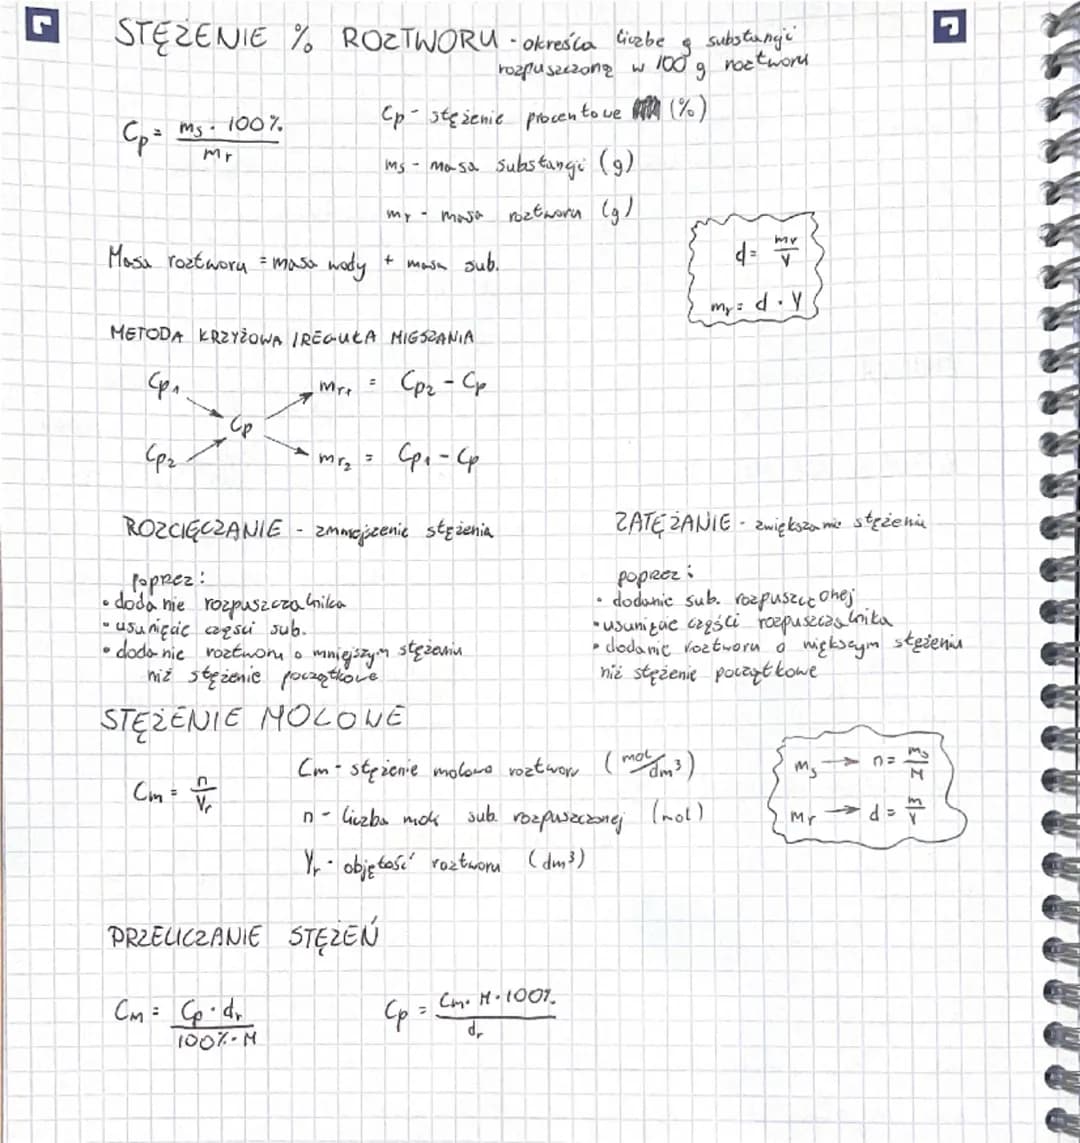 STĘŻENIE % ROZTWORU - określa liczbę g substancji
rozpuszczoną w 100 g roztworu
Cp = ms · 100% / mr
Cp - stężenie procentowe (%)
ms - masa substancji (g)
mr - masa roztworu (g)
d = mr / V
mr = d · V
Masa roztworu = masa wody + masa sub.
METODA KRZYŻOWA / REGUŁA MIESZANIA
Cp1 mr1 = Cp2 - Cp
Cp
Cp2 mr2 = Cp1 - Cp
ROZCIĘCZANIE - zmniejszenie stężenia
poprzez:
• dodanie rozpuszczalnika
• usunięcie części sub.
• dodanie roztworu o mniejszym stężeniu
niż stężenie początkowe
ZATĘŻANIE - zwiększanie stężenia
poprzez:
• dodanie sub. rozpuszczonej
• usunięcie części rozpuszczalnika
• dodanie roztworu o większym stężeniu
niż stężenie początkowe
STĘŻENIE MOLOWE
Cm = n / Vr
Cm - stężenie molowe roztworu (mol/dm³)
n - liczba moli sub. rozpuszczonej (mol)
Vr - objętość roztworu (dm³)
ms → n = ms / M
mr → d = m / V
PRZELICZANIE STĘŻEŃ
Cm = Cp · dr / 100% · M
Cp = Cm · M · 100% / dr